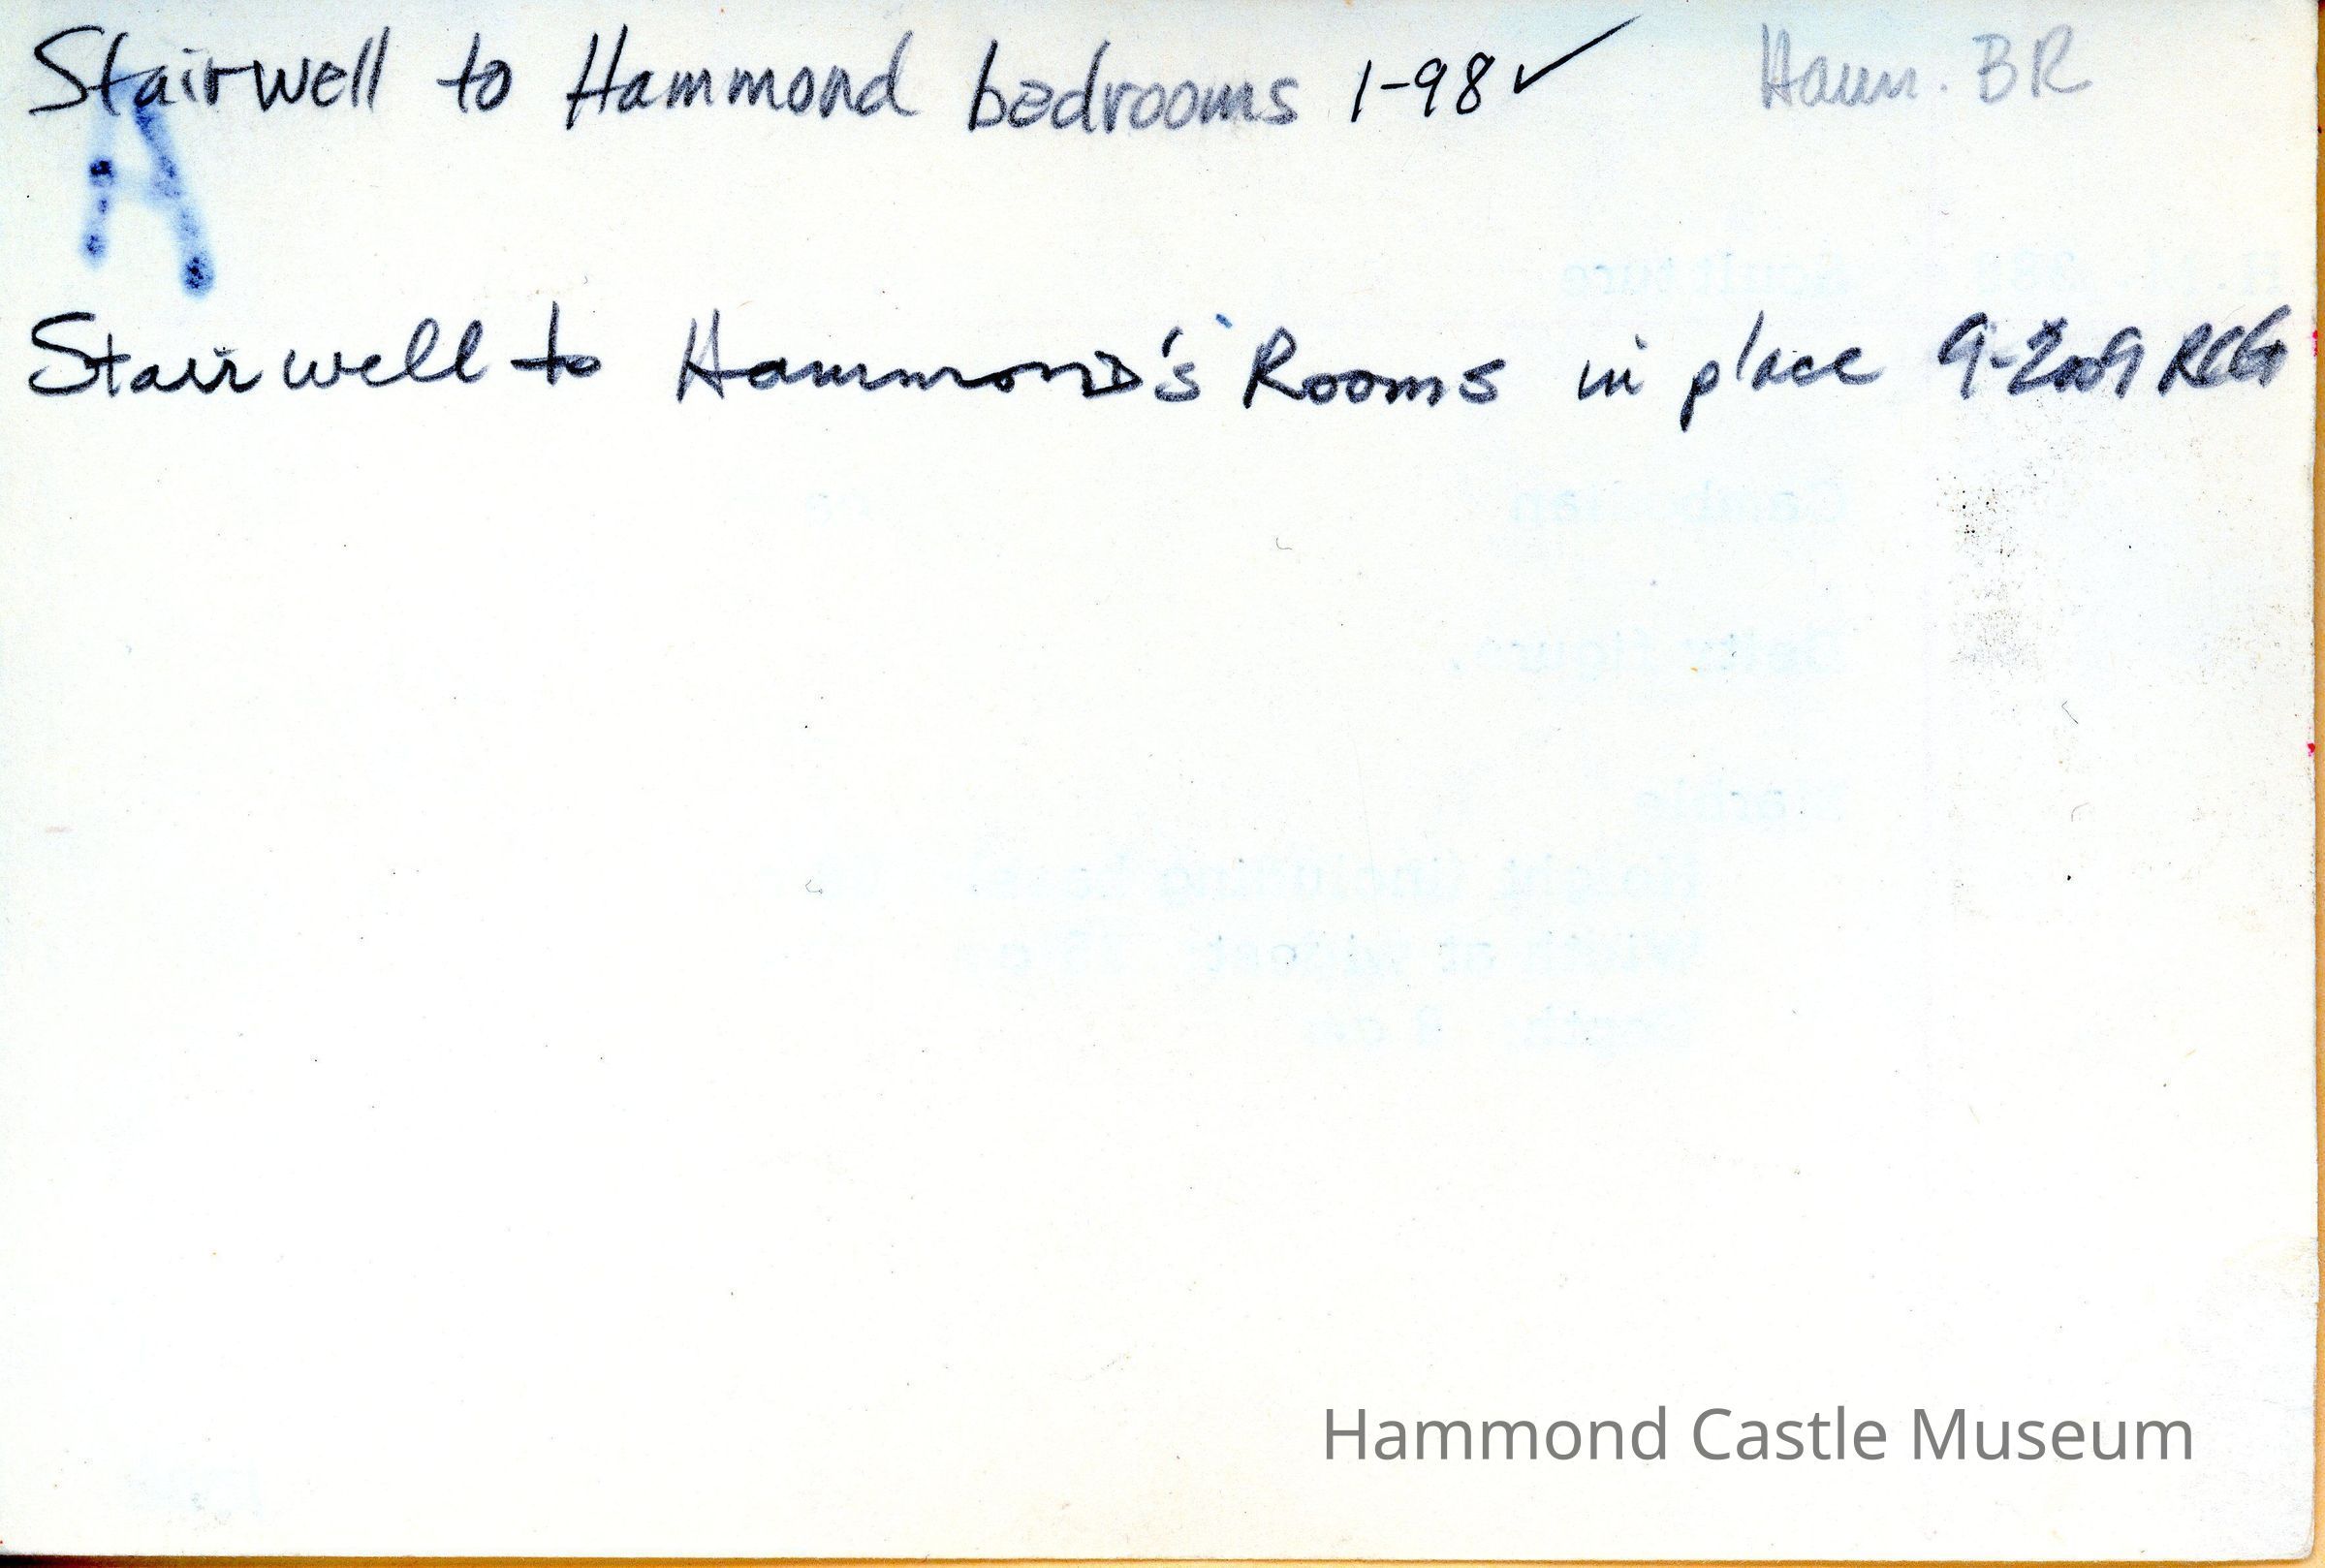 Stairwell to Hammond bedrooms 1-98 ✓ Hamm. BR
A
Stairwell to Hammond's Rooms in place 9-2009 RCG
Hammond Castle Museum